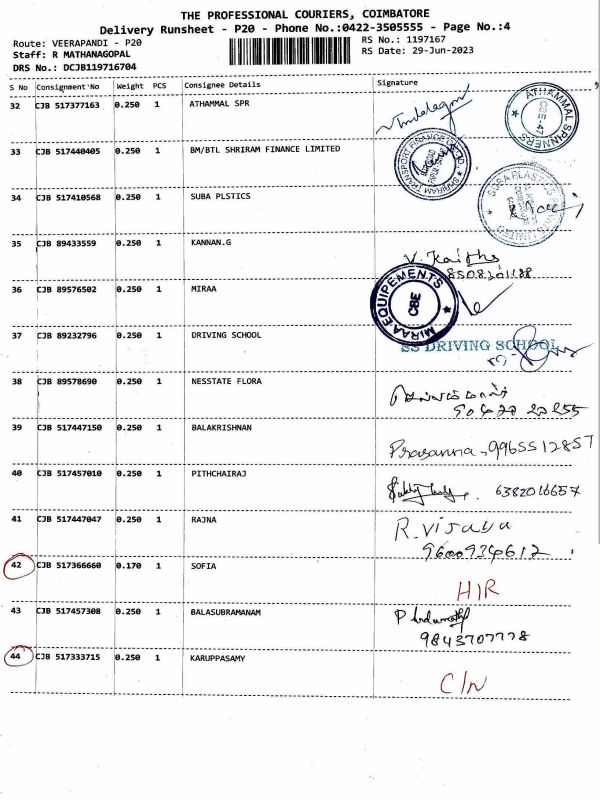 THE PROFESSIONAL COURIERS, COIMBATORE
Delivery Runsheet - P20 - Phone No.:0422-3505555 - Page No.:4
Route: VEERAPANDI - P20
RS No.: 1197167
Staff: R MATHANAGOPAL
RS Date: 29-Jun-2023
DRS No.: DCJB119716704
S No Consignment No Weight PCS Consignee Details Signature
32 CJB 517377163 0.250 1 ATHAMMAL SPR
ATHAMMAL SPINNERS CBE-47
33 CJB 517440405 0.250 1 BM/BTL SHRIRAM FINANCE LIMITED
34 CJB 517410568 0.250 1 SUBA PLSTICS
35 CJB 89433559 0.250 1 KANNAN.G
36 CJB 89576502 0.250 1 MIRAA
MIRAA EQUIPEMENTS CBE
37 CJB 89232796 0.250 1 DRIVING SCHOOL
SS DRIVING SCHOOL
38 CJB 89578690 0.250 1 NESSTATE FLORA
39 CJB 517447150 0.250 1 BALAKRISHNAN
Prasanna, 9965512857
40 CJB 517457010 0.250 1 PITHCHAIRAJ
6382016657
41 CJB 517447047 0.250 1 RAJNA
R. Vijaya
9600934612
42 CJB 517366660 0.170 1 SOFIA
H/R
43 CJB 517457308 0.250 1 BALASUBRAMANAM
P Indumathy
9843707778
44 CJB 517333715 0.250 1 KARUPPASAMY
C/N